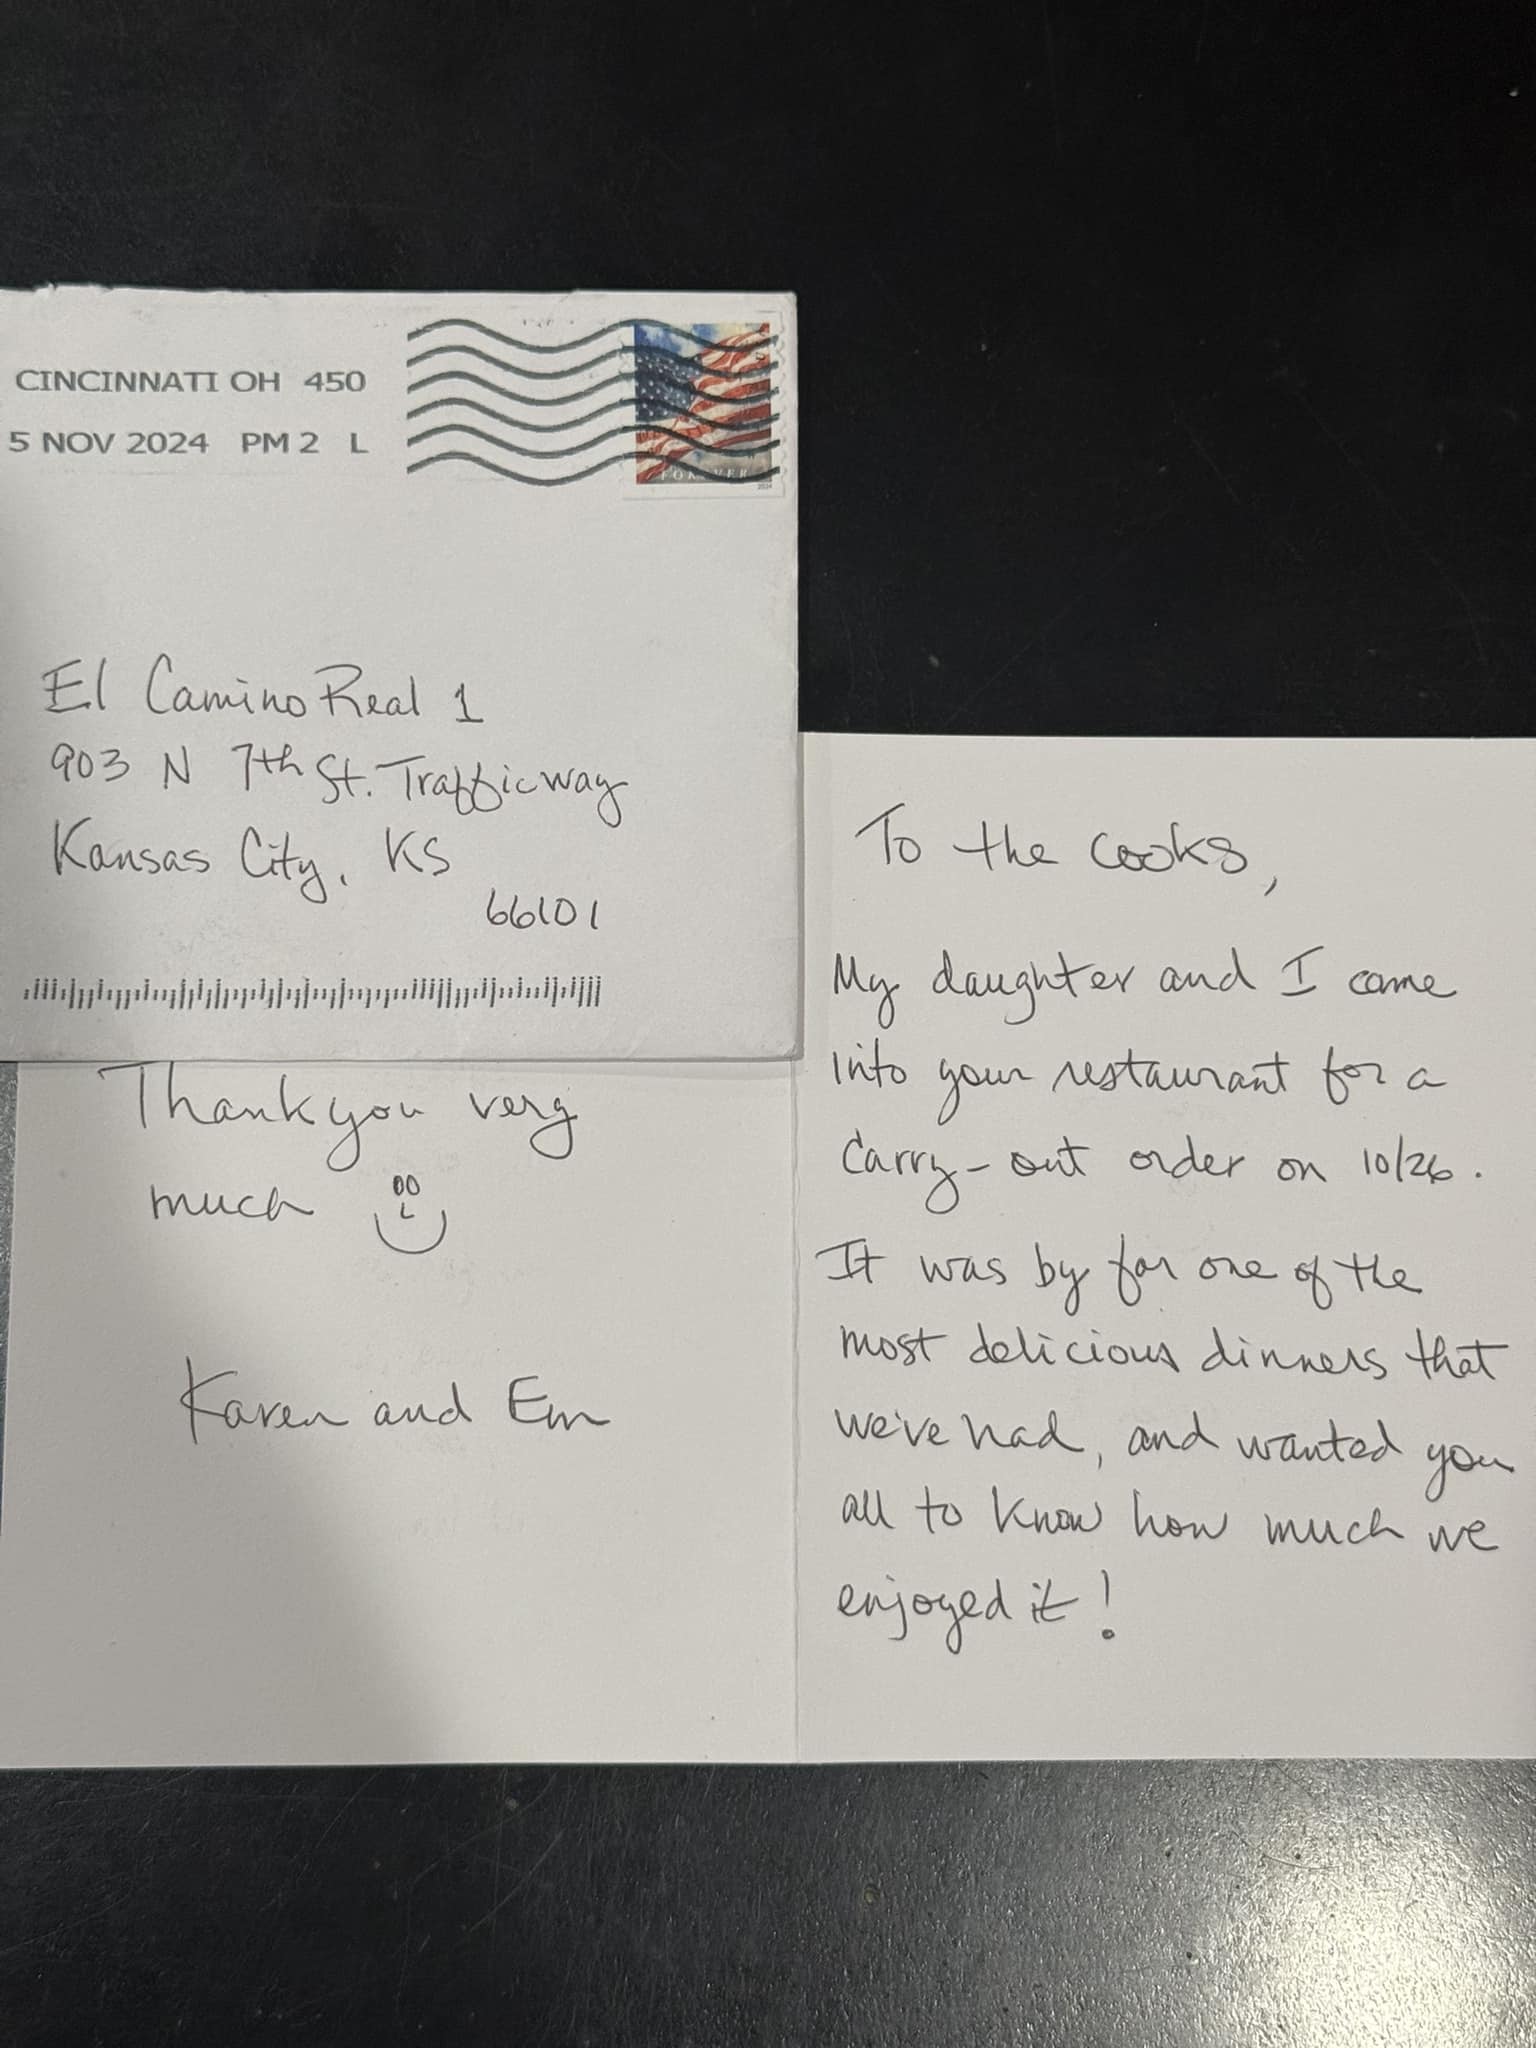 CINCINNATI OH 450
5 NOV 2024 PM 2 L
FOREVER
2024
El Camino Real 1
903 N 7th St. Trafficway
Kansas City, KS
66101
Thank you very
much
Karen and Em
To the cooks,
My daughter and I came
into your restaurant for a
carry-out order on 10/26.
It was by far one of the
most delicious dinners that
we've had, and wanted you
all to know how much we
enjoyed it!